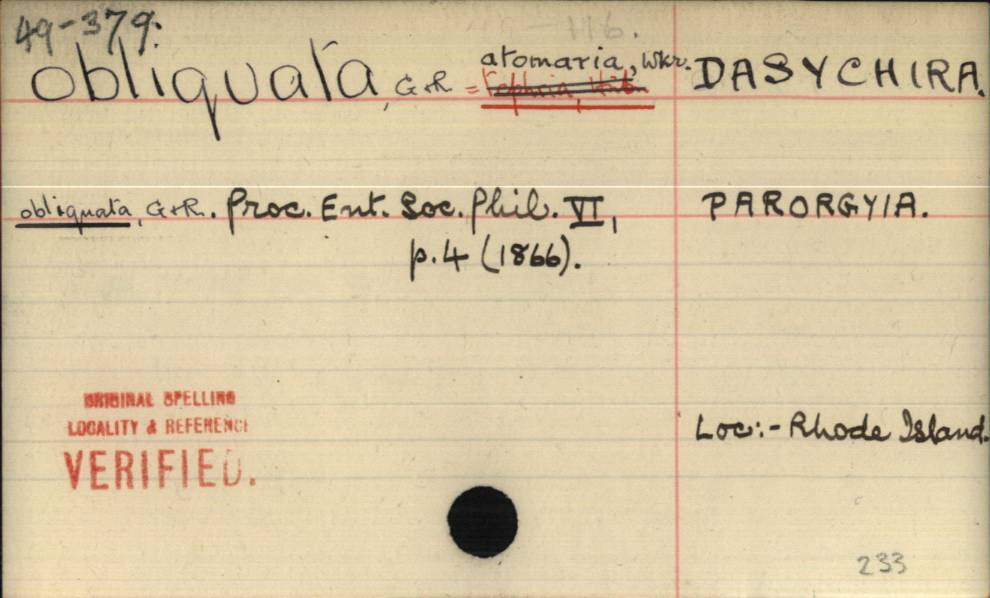 49-379.
116.
obliquata, G+R = atomaria, Wkr. DASYCHIRA.
tephria, Hb.
obliquata, G+R. Proc. Ent. Soc. Phil. VI, PARORGYIA.
p.4 (1866).
ORIGINAL SPELLING
LOCALITY & REFERENCE
VERIFIED.
Loc:- Rhode Island.
233